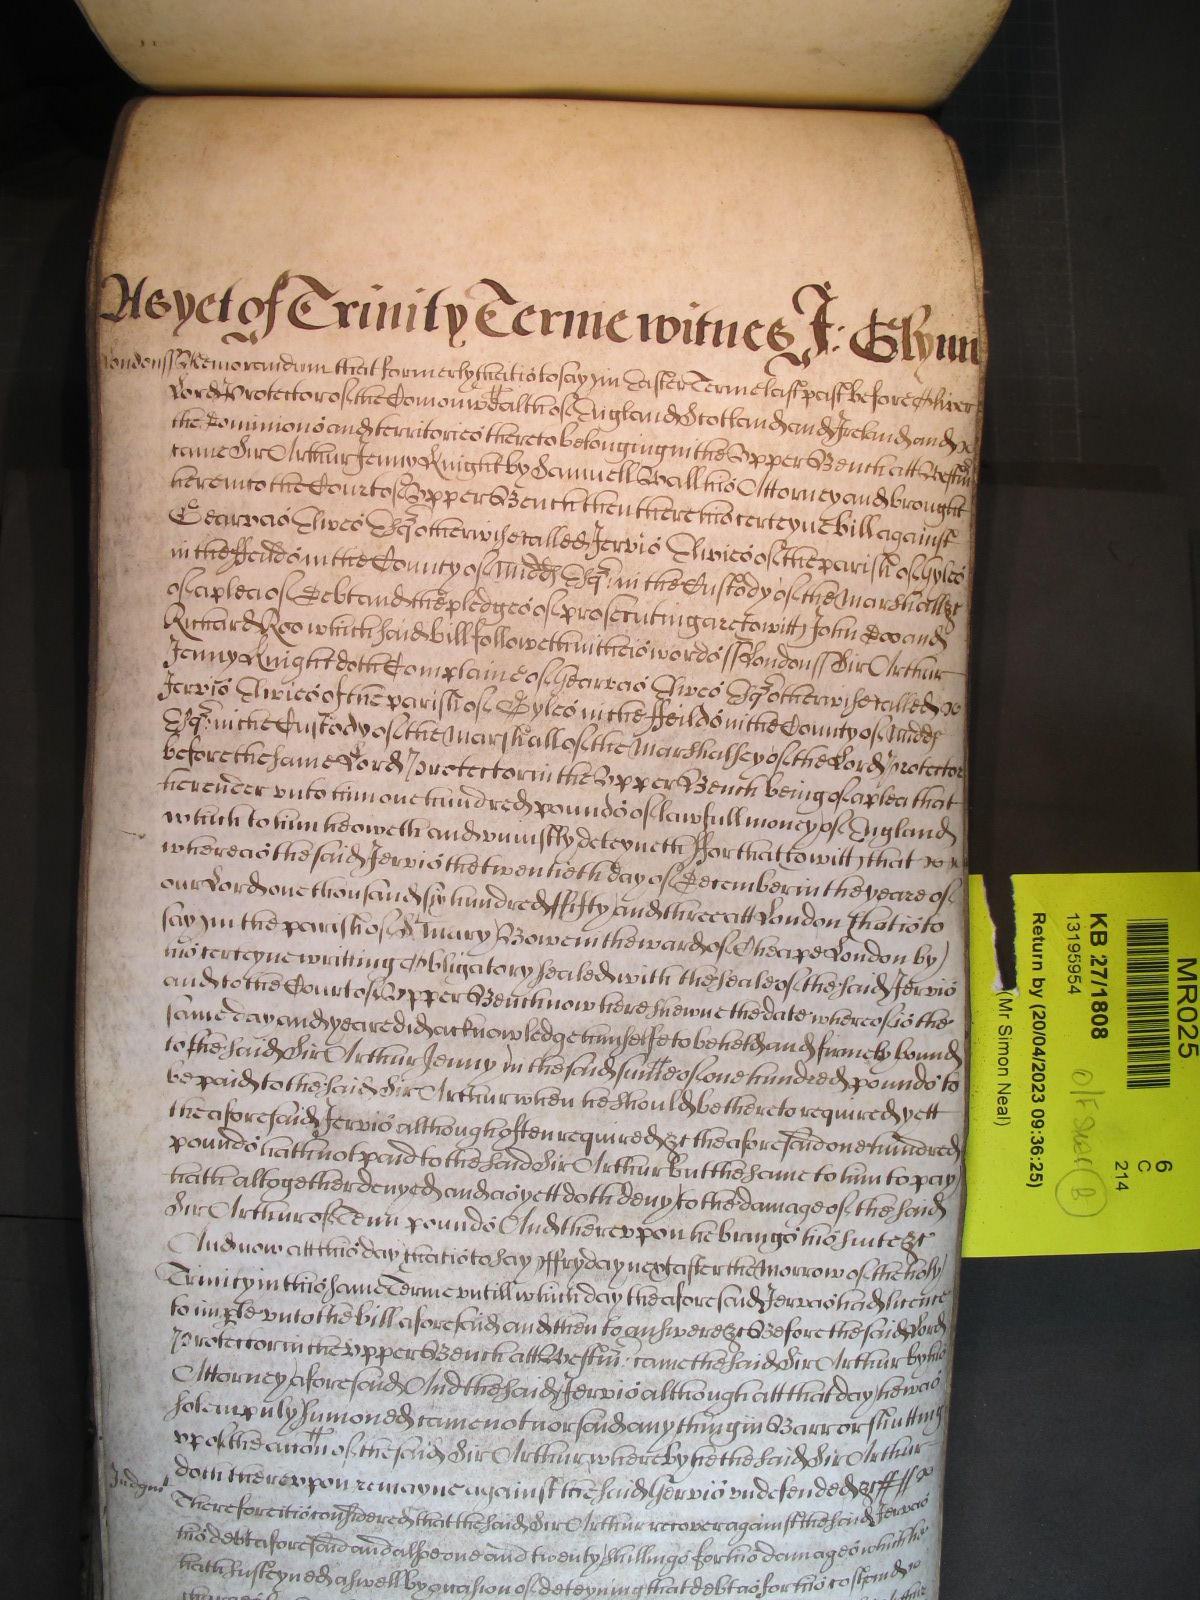 As yet of Trinity Terme witnes J: Glynn
London ss Memorandum that formerly that is to say in Easter Terme last past before Oliver
Lord Protector of the Comonwealth of England Scotland and Ireland and
the dominions and territories thereto belonging in the Upper Bench att Westm
came Sir Arthur Jenny Knight by Samuell Wall his Attorney and brought
here into the Court of Upper Bench then there his certeyne bill against
Gearvas Esq otherwise called Jervis of the parish of Gyles
in the ffeilds in the County of Midd Esq in the Custody of the Marshall &c
of a plea of Debt and the pledges of prosecuting are to witt John Doo and
Richard Roo which said bill followeth in theis words ss London ss Sir Arthur
Jenny Knight doth Complaine of Gearvas Esq otherwise called
Jervis of the parish of Gyles in the ffeilds in the County of Midd
Esq in the Custody of the Marshall of the Marshalsey of the Lord Protector
before the same Lord Protector in the Upper Bench being of a plea that
he render unto him one hundred pounds of lawfull money of England
which to him he oweth and uniustly deteyneth ffor that to witt that
whereas the said Jervis the twentieth day of December in the yeare of
our Lord one thousand six hundred ffifty and three att London that is to
say in the parish of St Mary Bowe in the ward of Cheape London by
his certeyne writting Obligatory sealed with the seale of the said Jervis
and to the Court of Upper Bench now here shewne the date whereof is the
same day and yeare did acknowledge himselfe to be held and firmely bound
to the said Sir Arthur Jenny in the said summe of one hundred pounds to
be paid to the said Sir Arthur when he should be thereto required yett
the aforesaid Jervis although often required &c the aforesaid one hundred
pounds hath not paid to the said Sir Arthur but the same to him to pay
hath altogether denyed and as yett doth deny to the damage of the said
Sir Arthur of Tenn pounds And thereupon he brings his suite &c
And now att this day that is to say ffryday next after the Morrow of the holy
Trinity in this same Terme untill which day the aforesaid Jervas had licence
to imple unto the bill aforesaid and then to answere &c Before the said Lord
Protector in the Upper Bench att Westm came the said Sir Arthur by his
Attorney aforesaid And the said Jervis although att that day he was
solempnly sumoned came not nor said any thing in Barr or shutting
up of the action of the said Sir Arthur whereby he the said Sir Arthur
doth thereupon remayne against the said Gervis undefended &c
Judgmt
Therefore itis considered that the said Sir Arthur recover against the said Jervas
his debt aforesaid and alsoe one and twenty shillings for his damages which he
hath susteyned aswell by occasion of deteyning that debt as for his costs and
MR025
6
C
214
KB 27/1808
13195954
Return by (20/04/2023 09:36:25)
(Mr Simon Neal)